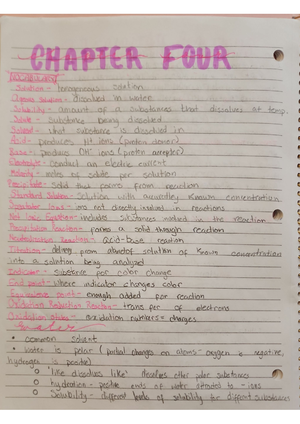 CHAPTER FOUR
Vocabulary
Solution - homogeneous solution
Aqueous solution - dissolved in water
Solubility - amount of a substance that dissolves at temp.
Solute - substance being dissolved
Solvent - that substance is dissolved in
Acid - produces H+ ions (proton donor)
Base - produce OH- ions (proton acceptor)
Electrolyte - conduct an electric current
Molarity - moles of solute per solution
Precipitate - solid that forms from reaction
Standard Solution - solution with accurately known concentration
Spectator Ions - ions not directly involved in reactions
Net Ionic Equation - includes substances involved in the reaction
Precipitation Reaction - forms a solid through reaction
Neutralization Reaction - acid-base reaction
Titration - adding from solution of known concentration
into a solution being analyzed
Indicator - substance for color change
End point - where indicator changes color
Equivalence point - enough added for reaction
Oxidation Reduction Reaction - transfer of electrons
Oxidation States - oxidation numbers = charges
Water
• common solvent
• water is polar (partial charges on atoms - oxygen is negative,
hydrogen is positive)
○ "like dissolves like" dissolves other polar substances
○ hydration - positive ends of water attracted to - ions
○ Solubility - different levels of solubility for different substances